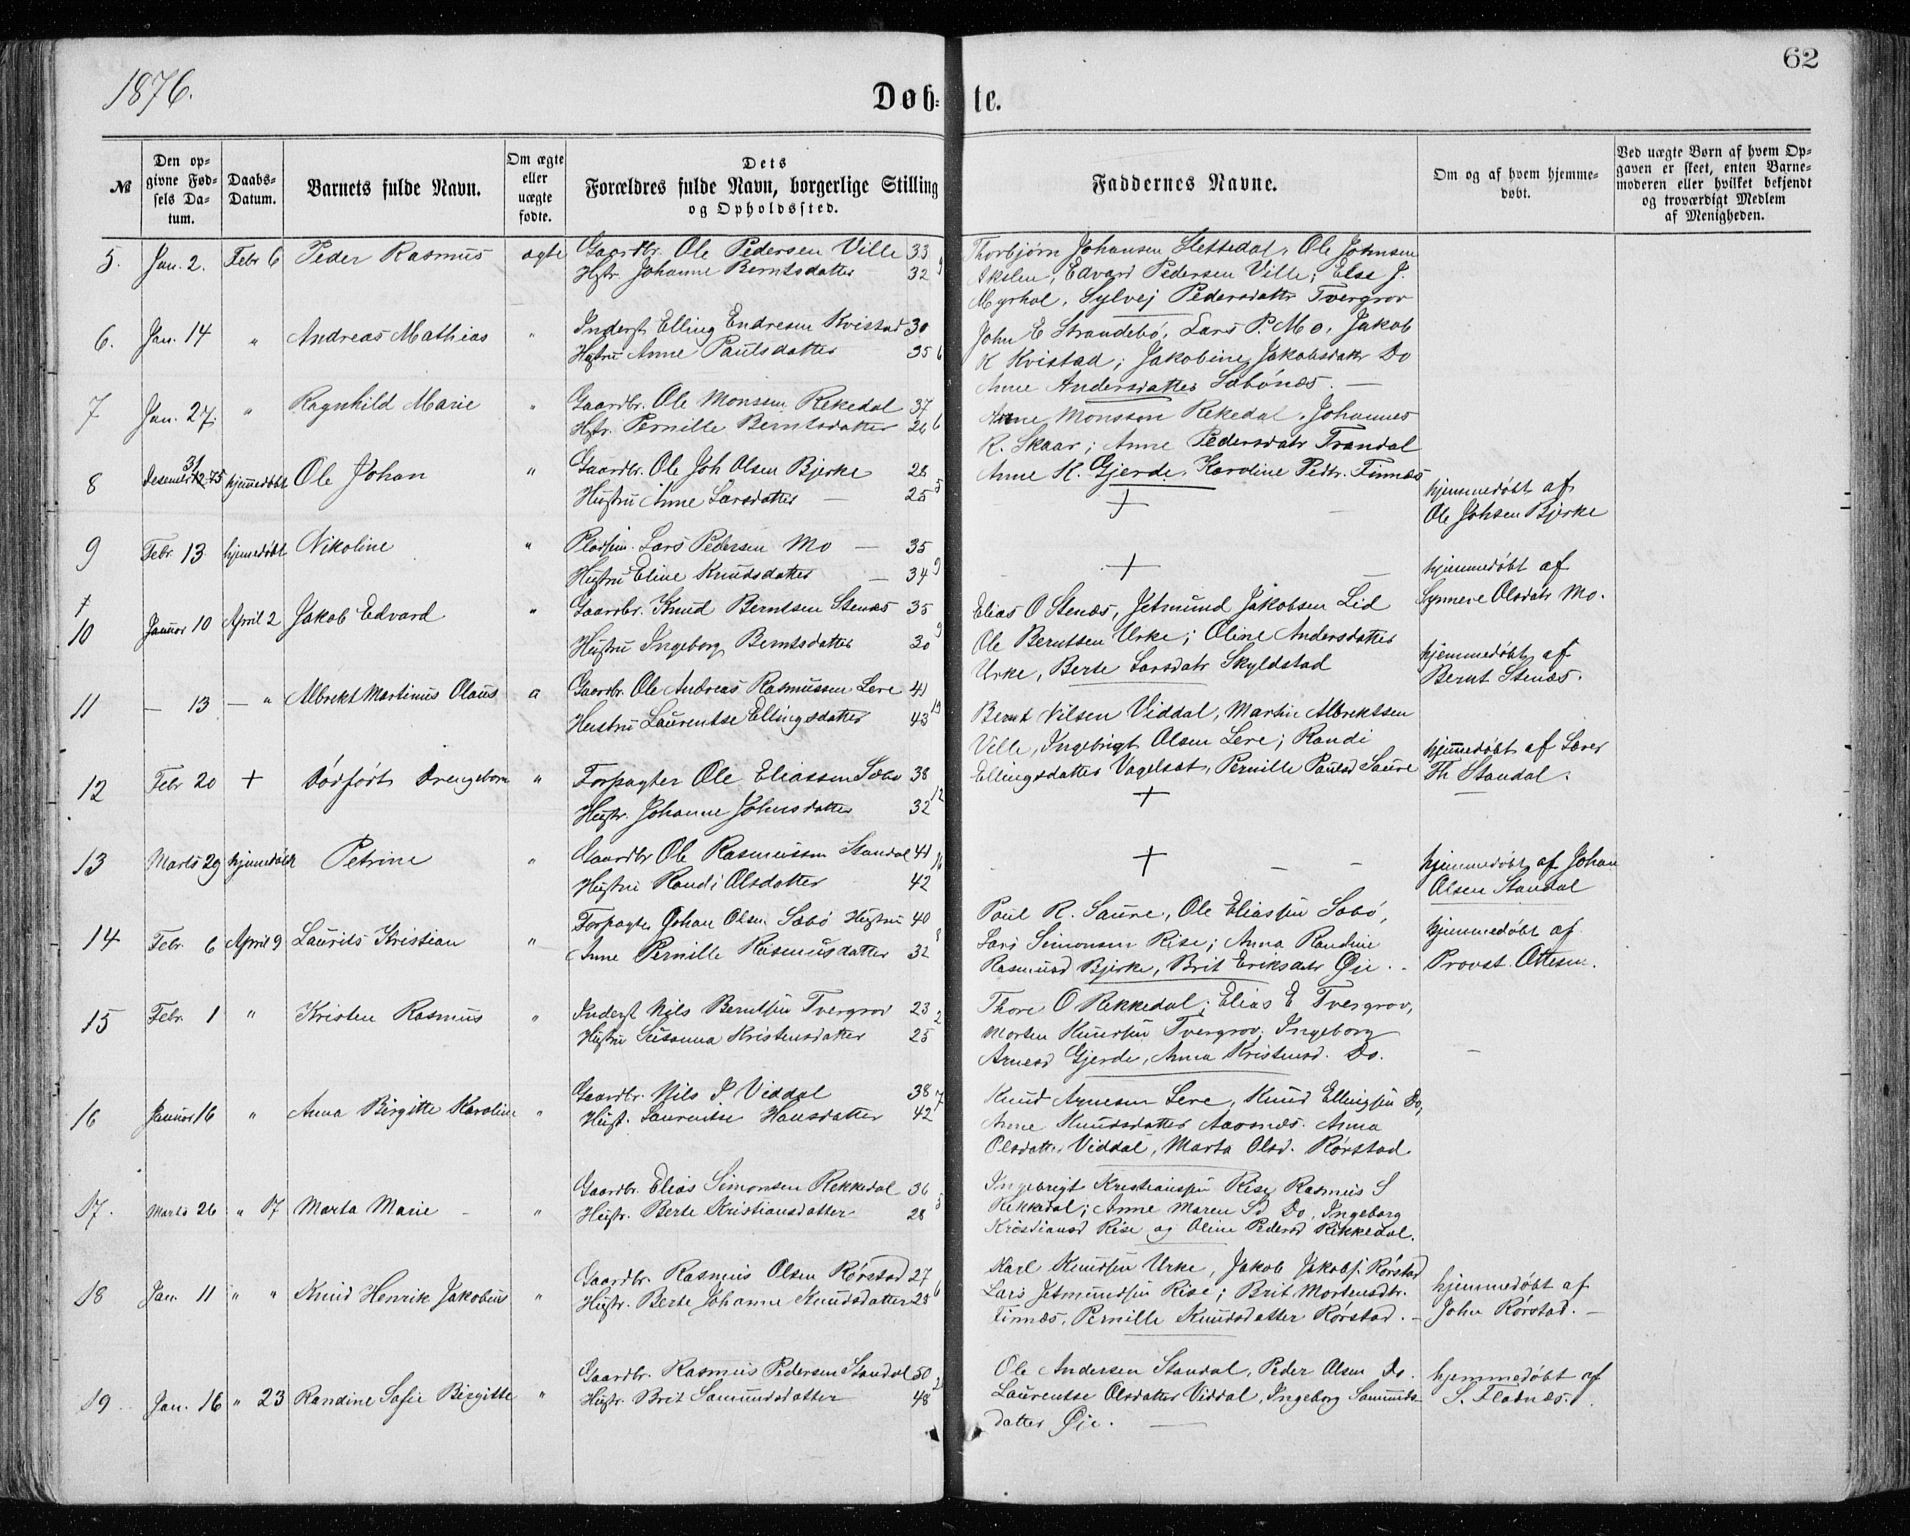 1876.
62
Døb=
te.
№
Den op=
givne Fød=
sels Da=
tum.
Daabs=
Datum.
Barnets fulde Navn.
Om ægte
eller
uægte
fødte.
Dets
Forældres fulde Navn, borgerlige Stilling
og Opholdssted.
Faddernes Navne.
Om og af hvem hjemme=
døbt.
Ved uægte Børn af hvem Op=
gaven er skeet, enten Barne=
moderen eller hvilket bekjendt
og troværdigt Medlem
af Menigheden.
5. Jan. 2. Febr 6 Peder Rasmus ægte Gaardbr. Ole Pedersen Ville 33
Hstr. Johanne Berntsdatter 32 9
Thorbjørn Johansen Slettedal, Ole Johnsen
Edvard Pedersen Ville; Else J.
Myrhol, Sylvej Pedersdattr Tvergrov
6. Jan. 14 " Andreas Mathias " Inderst Elling Endresen Kvistad 30
Hustru Anne Paulsdatter 35 6
John E Strandebø, Lars P. Mo, Jakob
K Kvistad; Jakobine Jakobsdattr Do
Anne Andersdatter Sæbönæs. —
7 Jan. 27. " Ragnhild Marie " Gaardbr. Ole Monssen Rekedal 37
Hstr. Pernille Berntsdatter 26 6
Arne Monsson Rekedal, Johannes
R. Skaar; Anne Pedersdatr Trandal
Anne K. Gjerde, Karoline Pedtr. Finnæs
8 Desember 31 12 75 hjemmedøbt Ole Johan " Gaardbr. Ole Joh Olsen Bjerke 28
Hustru Anne Larsdatter — 25 5
+
hjemmedøbt af
Ole Johsen Bjerke
9 Febr. 13 hjemmedøbt Nikoline " Pladsm. Lars Pedersen Mo — 35
Hustru Eline Knudsdatter — 34 9
+
hjemmedøbt af
Synneve Olsdatr Mo.
†
10 Januar 10 April 2 Jakob Edvard " Gaardbr. Knud Berntsen Stenæs 35
Hustru Ingeborg Berntsdatter 30 9
Elias O Stenæs, Jetmund Jakobsen Lid
Ole Berntsen Urke; Oline Andersdatter
Urke, Berte Larsdatr Skyldstad
hjemmedøbt af
Bernt Stenæs.
11 — 13 — " Albrekt Martinus Olaus a Gaardbr. Ole Andreas Rasmussen Lere 41
Hustru Laurentse Ellingsdatter 43 19
Bernt Nilsen Viddal, Martin Albrektsen
Ville, Ingebrigt Olsen Lere; Randi
Ellingsdatter Vagelsæt, Pernille Paulsd Saure
hjemmedøbt af Lærer
Th Standal.
12 Febr 20 + Dødfødt Drengebarn " Forpagter Ole Eliassen Sæbø 38
Hustr. Johanne Johnsdatter 32 12
+
13 Marts 29 hjemmedøbt Petrine " Gaardbr Ole Rasmussen Standal 41
Hustru Randi Olsdatter 42 16
+ — —
hjemmedøbt af Johan
Olsen Standal
14 Febr. 6 April 9 Laurits Kristian " Forpagter Johan Olsen Sæbø Hustru 40
Anne Pernille Rasmusdatter 32 8
Paul R. Saure, Ole Eliassen Sæbø,
Lars Simonsen Rise; Anna Randine
Rasmusd Bjerke, Brit Eriksdatr Øie. —
hjemmedøbt af
Provst Ottesen.
15 Febr. 1 " Kristen Rasmus " Inderst Nils Berntsen Tvergrov 23
Hustru Susanna Kristensdatter 25 2
Thore O Rekkedal; Elias E Tvergrov,
Morten Knudsen Tvergrov; Ingeborg
Arnesd Gjerde, Anna Kristensd. Do.
16 Januar 16 " Anna Birgitte Karoline " Gaardbr. Nils P Viddal 38
Hustr. Laurentse Hansdatter 42 7
Knud Arnesen Lere, Knud Ellingsen Do,
Anne Knudsdatter Aarsnæs, Anna
Olsdatter Viddal, Marta Olsd. Rørstad.
17. Marts 26 " 17 Marta Marie — " Gaardbr. Elias Simonsen Rekkedal 36
Hustr. Berte Kristiansdatter 28 3
Ingebrigt Kristiansen Rise, Rasmus S
Rekkedal; Anne Maren Sd Do, Ingeborg
Kristiansd Rise og Oline Pedersd Rekkedal.
18 Jan. 11 " " Knud Henrik Jakobus " Gaardbr. Rasmus Olsen Rørstad 27
Hustr. Berte Johanne Knudsdatter 28 6
Karl Knudsen Urke, Jakob Jakobs. Rørstad
Lars Jetmundsen Rise; Brit Mortensdtr.
Finnæs, Pernille Knudsdatter Rørstad. —
hjemmedøbt af
John Rørstad. —
19 Jan. 16 " 23 Randine Sofie Birgitte " Gaardbr. Rasmus Pedersen Standal 50
Hustr. Brit Samundsdatter 48 2
Ole Andersen Standal, Peder Olsen Do.
Laurentse Olsdatter Viddal, Ingeborg Samunds-
datter Øie. —
hjemmedøbt af
S. Flatnæs.